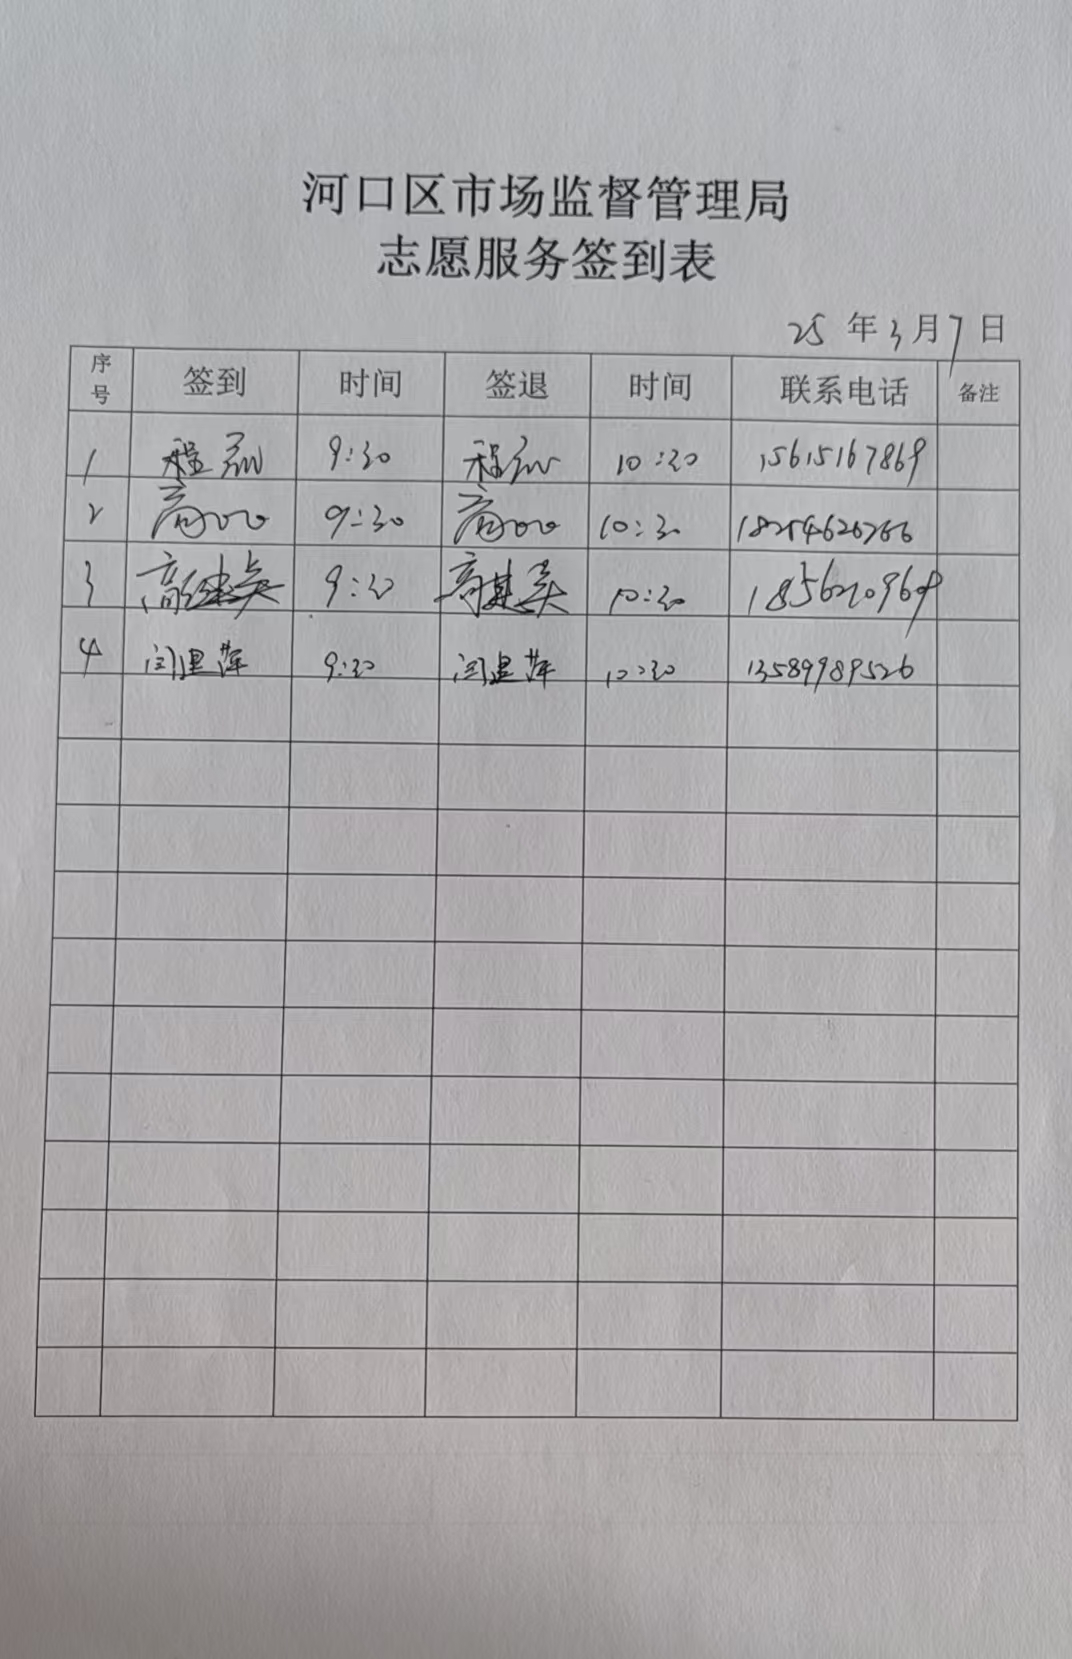 河口区市场监督管理局
志愿服务签到表
25 年 3 月 7 日
序号 签到 时间 签退 时间 联系电话 备注
1 程 9:30 程 10:30 15615167869
2 高 9:30 高 10:30
3 高 9:30 高 10:30
4 闫 9:30 闫 10:30 13589989526